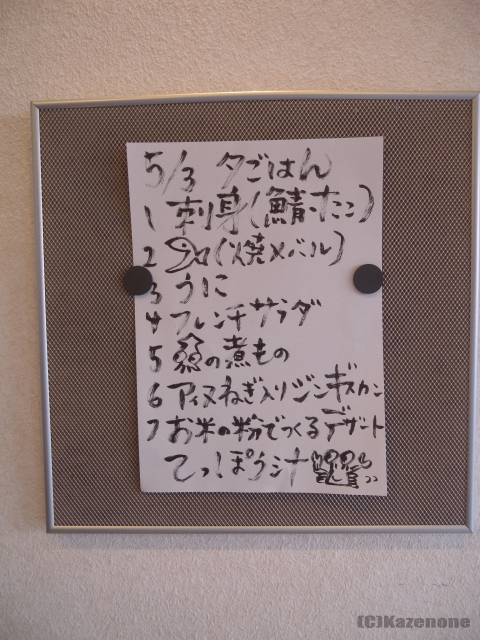 5/3 夕ごはん
1 刺身(鯖・たこ)
2 (焼メバル)
3 うに
4 フレンチサラダ
5 の煮もの
6 アイヌねぎ入りジンギスカン
7 お米の粉でつくるデザート
てっぽう汁
(C)Kazenone